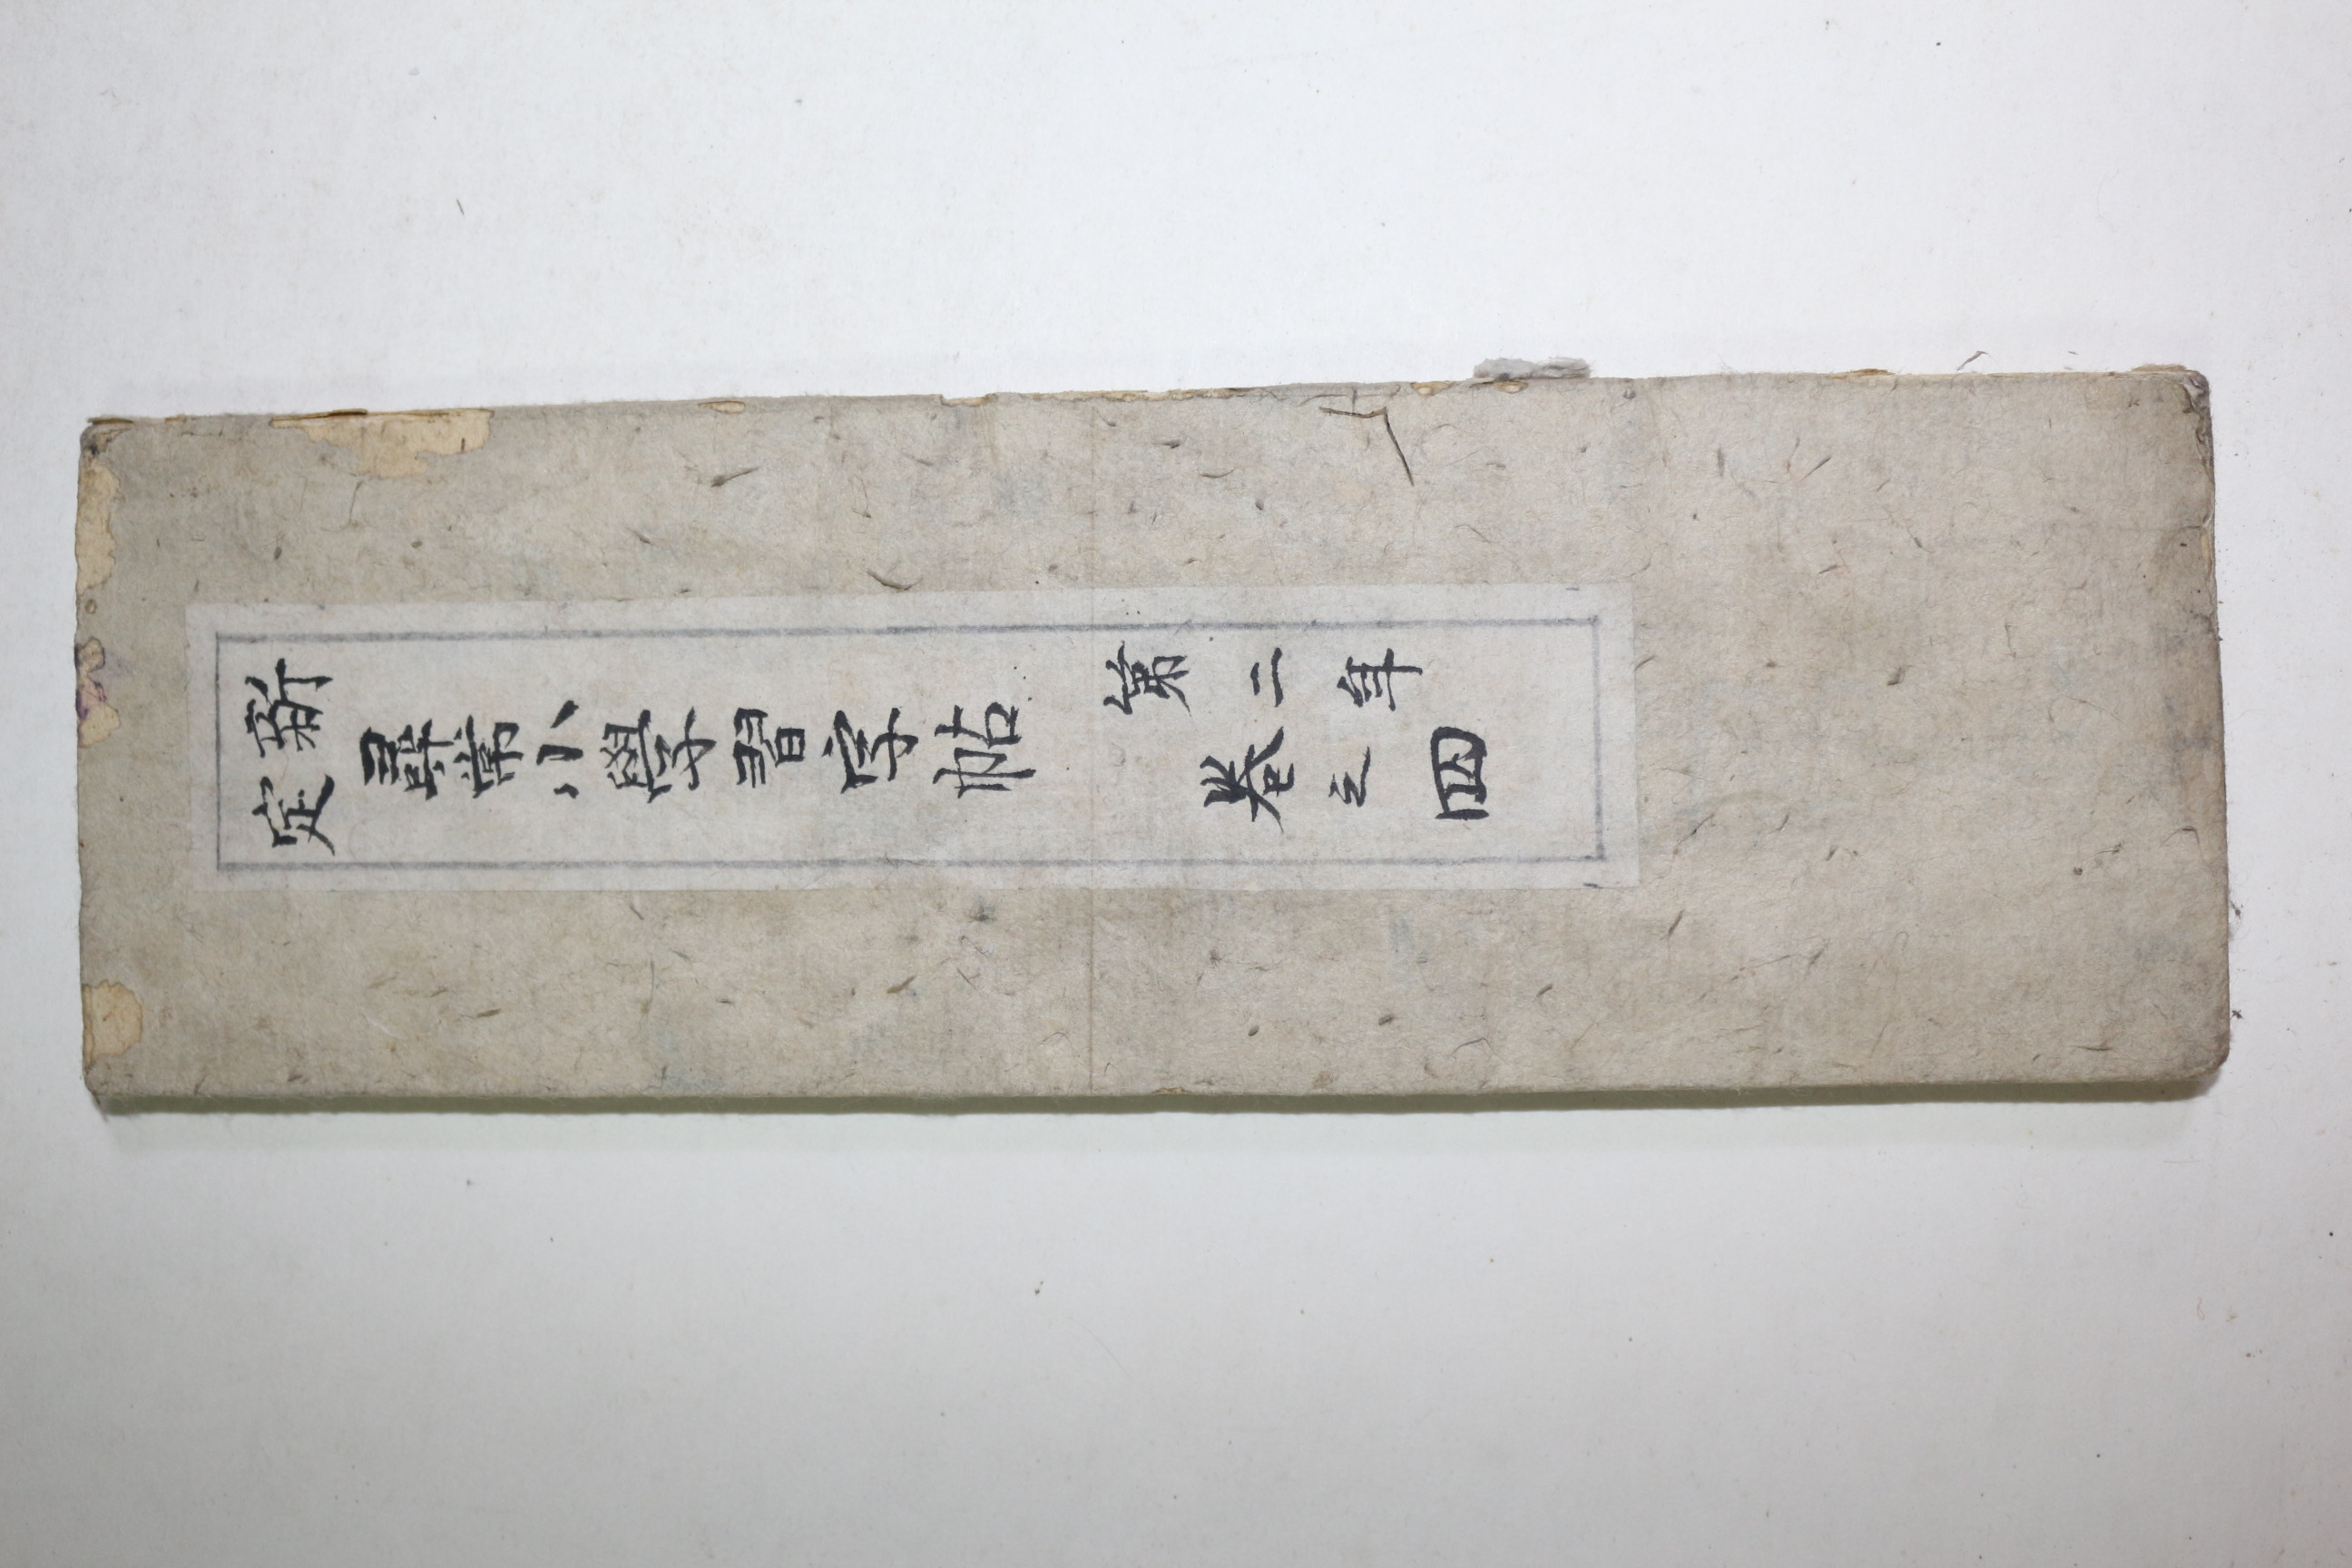 新定
尋常小學習字帖
第二年
卷之四